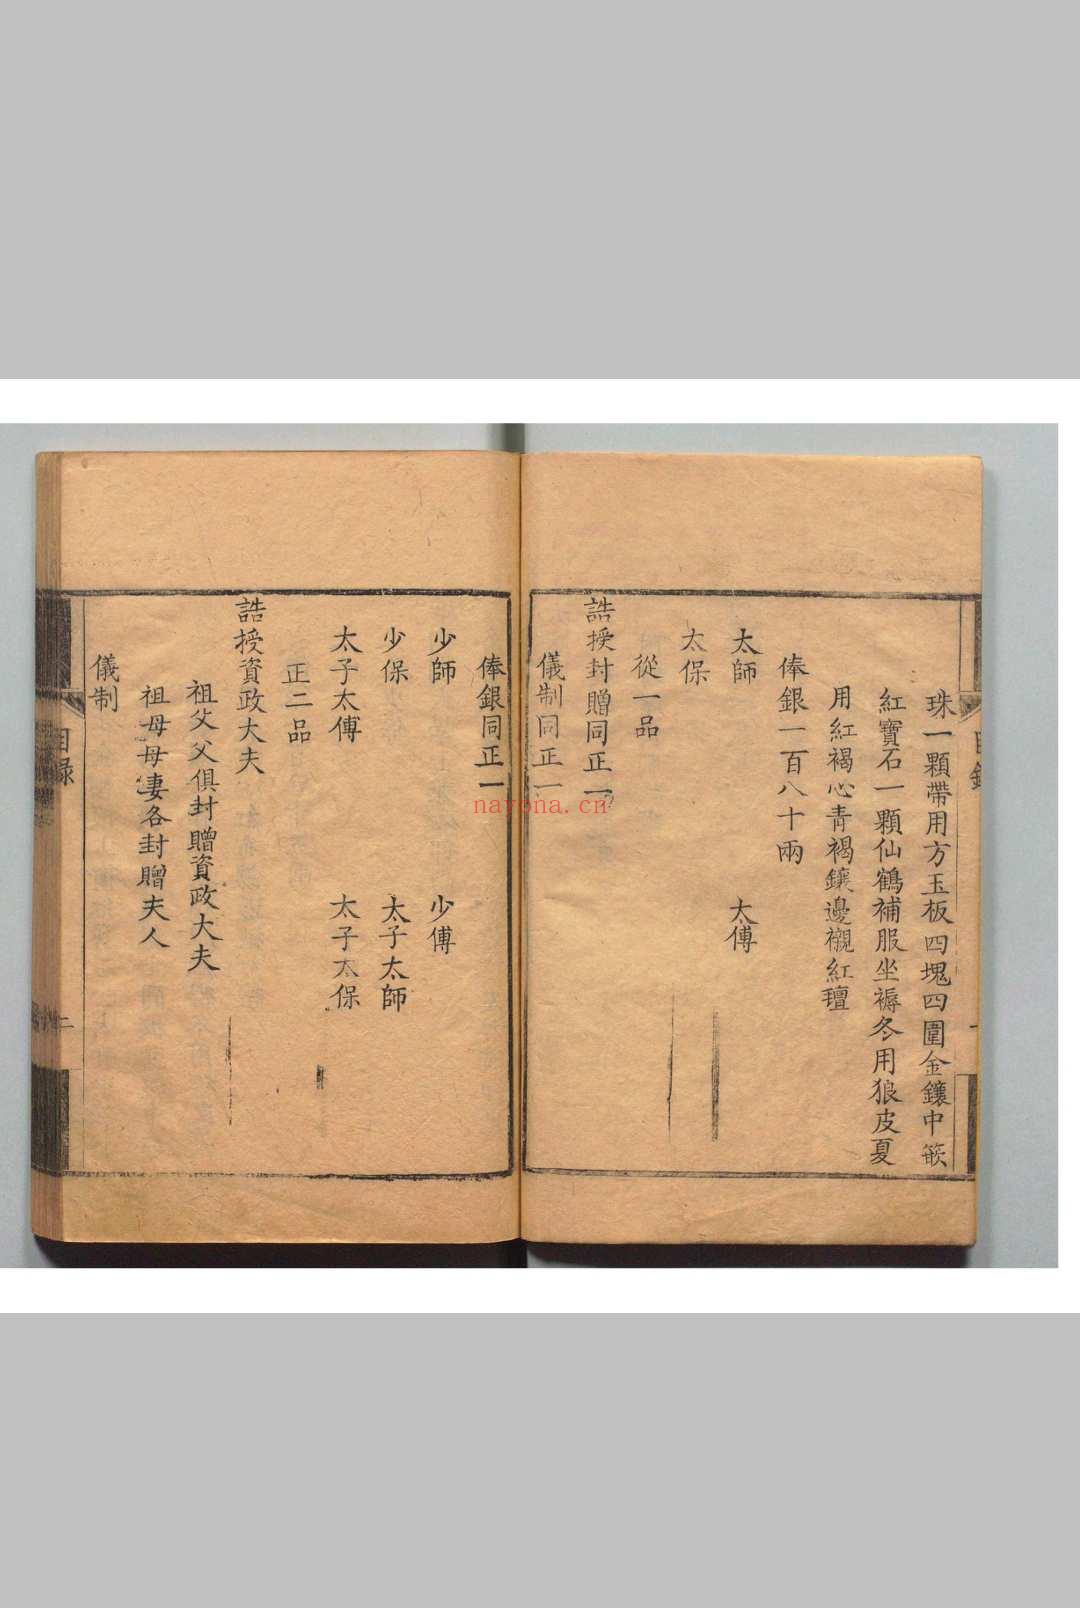 珠一顆帶用方玉板四塊四圍金鑲中嵌
紅寶石一顆仙鶴補服坐褥冬用狼皮夏
用紅褐心青褐鑲邊襯紅氊
俸銀一百八十兩
太師 太傅
太保
從一品
誥授封贈同正一
儀制同正一
俸銀同正一
少師 少傅
少保 太子太師
太子太傅 太子太保
正二品
誥授資政大夫
祖父父俱封贈資政大夫
祖母母妻各封贈夫人
儀制
目錄
二
nayona.cn